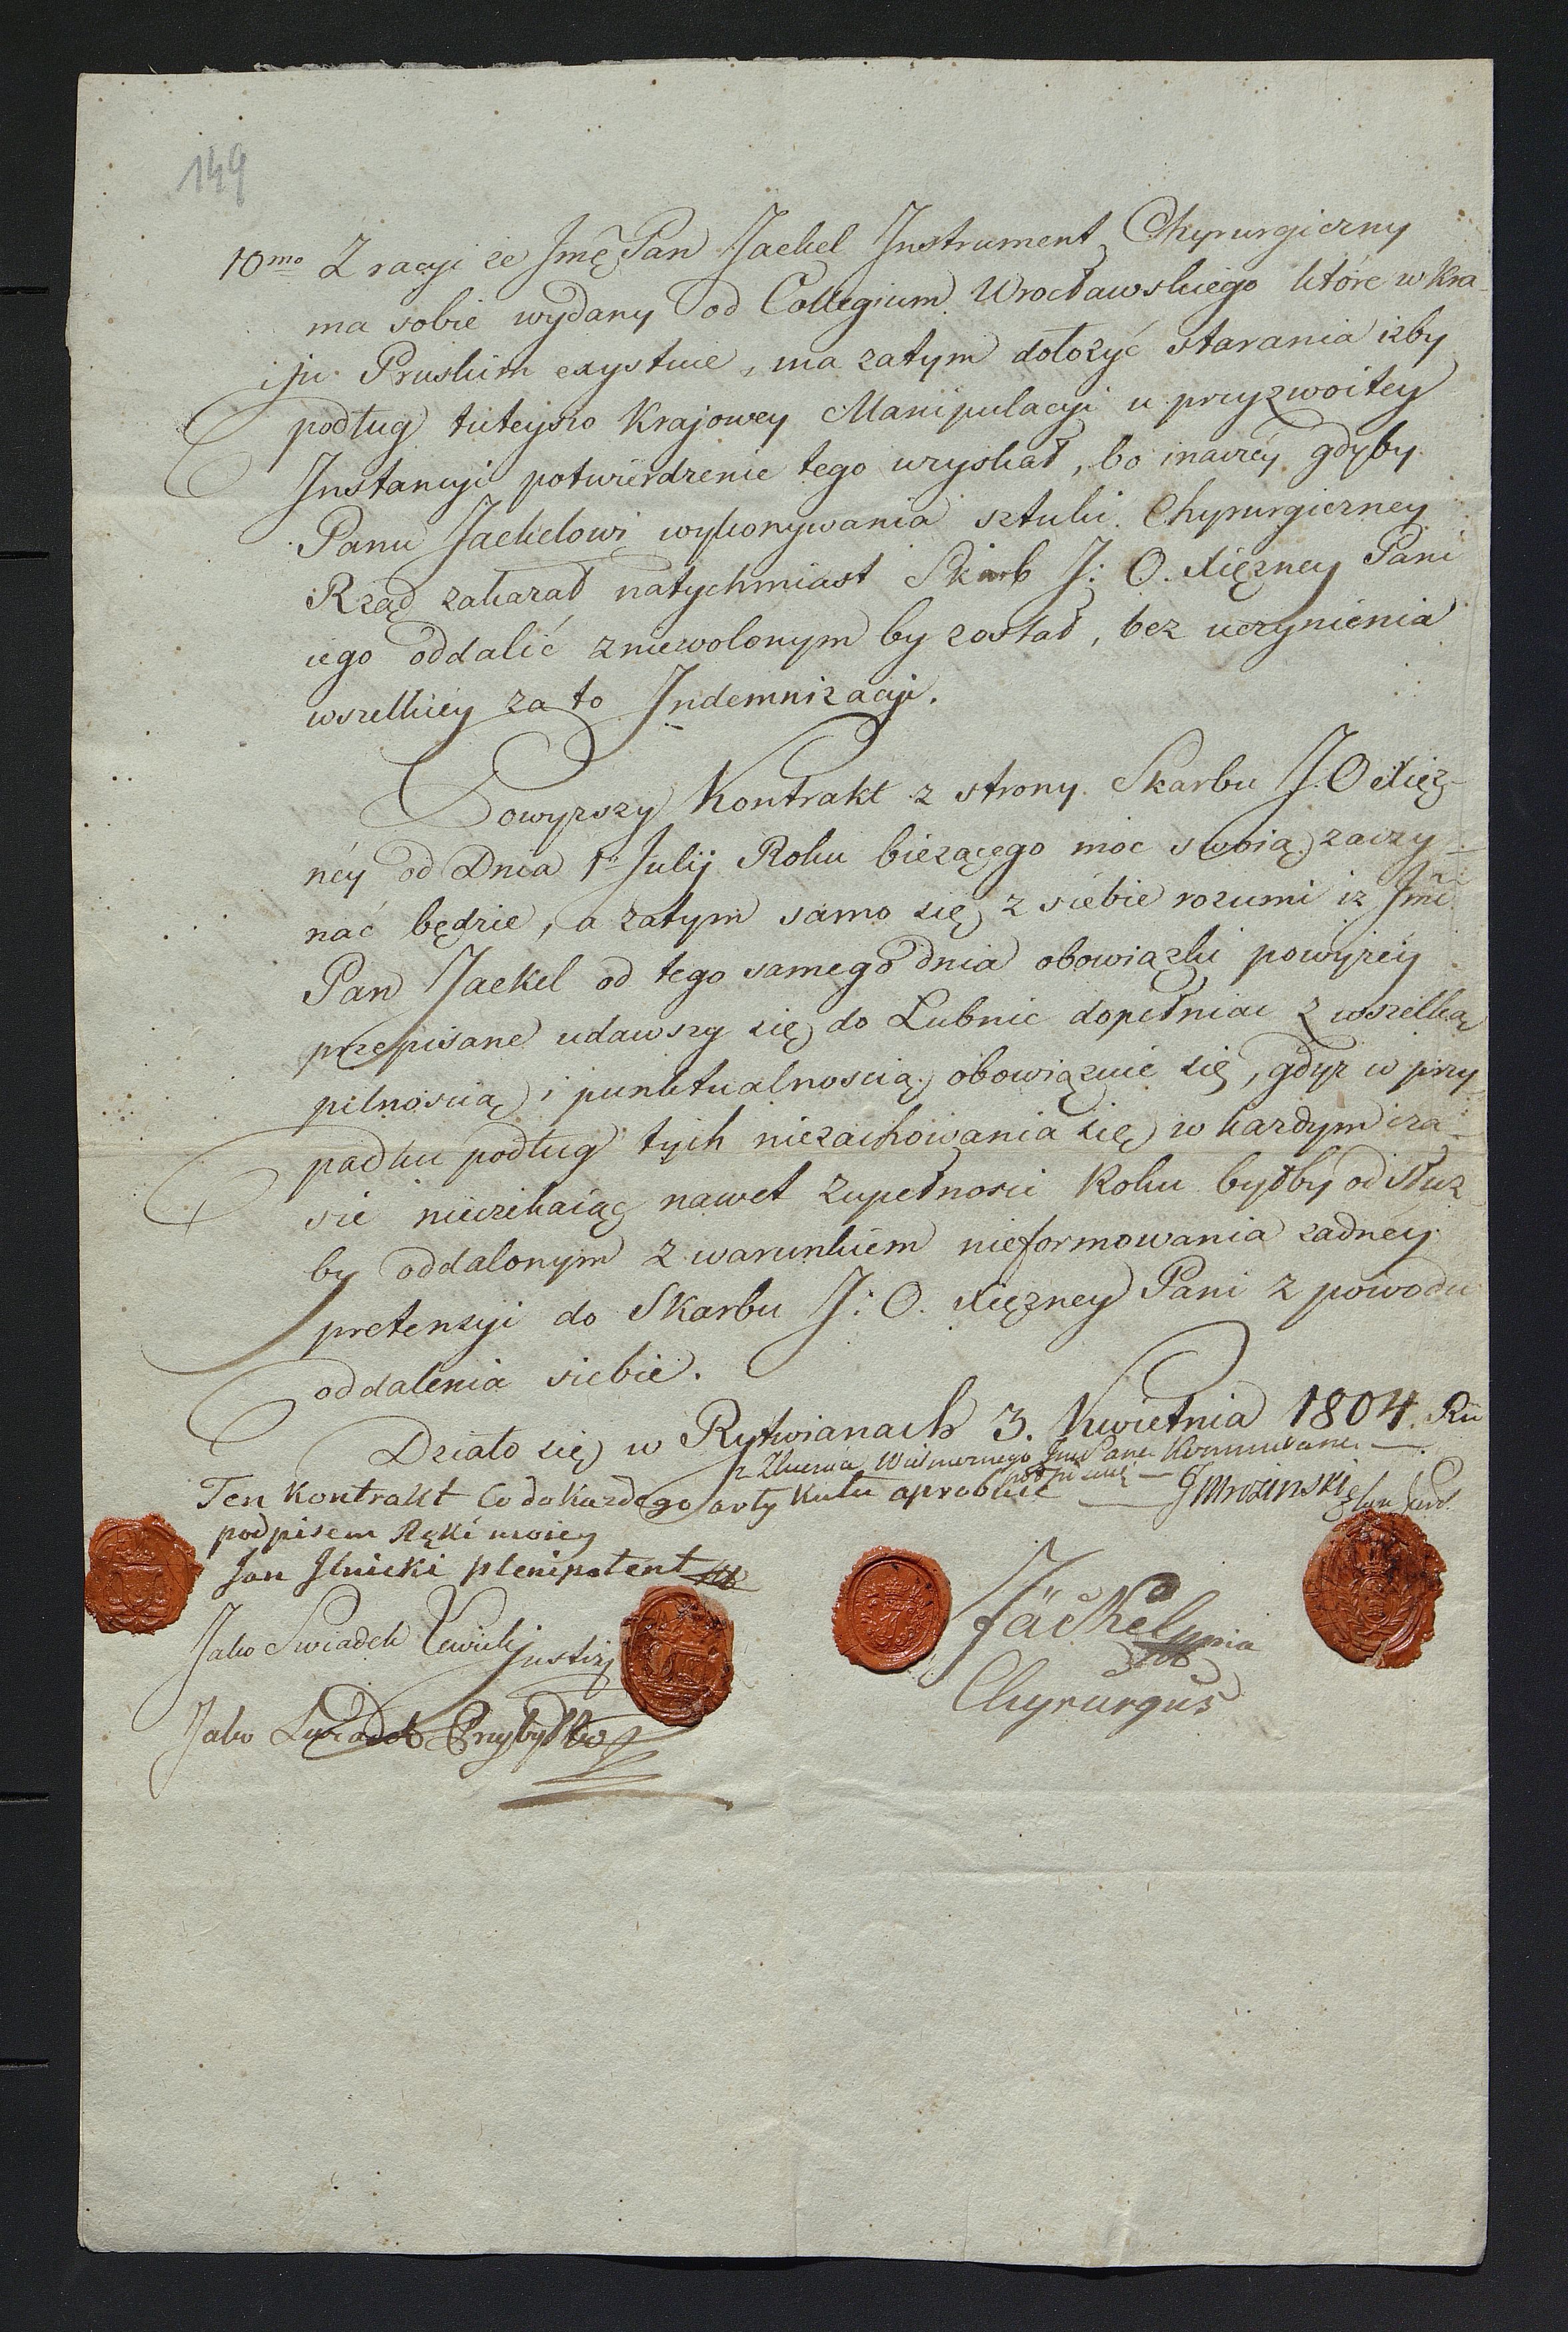 149
10mo Z racyi że Jmć Pan Jaekel Instrument Chyrurgiczny
ma sobie wydany od Collegium Wrocławskiego które w Kra-
ju Pruskim exystuie, ma zatym dołożyć starania iżby
podług tuteyszo Krajowey Manipulacyi u przyzwoitey
Instancyi potwierdzenie tego uzyskał, bo inaczéy gdyby
Panu Jaekelowi wykonywania sztuki Chyrurgiczney
Rząd zakazał natychmiast Skarb J: O. Xiężney Pani
iego oddalić zniewolonym by został, bez uczynienia
wszelkiéy za to Indemnizacyi.
Powyższy Kontrakt z strony Skarbu J. O Xięż-
néy od Dnia 1o Julij Roku bieżącego moc swoią zaczy-
nać będzie, a zatym samo się z siebie rozumi iż Jmć
Pan Jaekel od tego samego dnia obowiązki powyżéy
przepisane udawszy się do Łubnic dopełniać z wszelką
pilnoscią i punktualnoscią obowiązuie się, gdyż w przy-
padku podług tych niezachowania się w każdym cza-
sie nieczekaiąc nawet zupełnosci Roku byłby od służ
by oddalonym z warunkiem nieformowania żadnéy
pretensyi do Skarbu J: O. Xiężney Pani z powodu
oddalenia siebie.
Działo się w Rytwianach 3. Kwietnia 1804. Ru
z Zlecenia Wielmoznego Jmć Pana Kommissarza
podpisuię
Ten Kontrakt Co do każdego artykułu aprobuię
J Mrozinski
podpisem Ręki moiey
Jan Ilnicki plenipotent
Jäckel mpia
Jako Swiadek justicj
Chyrurgus
Jako Swiadek Przybyłko